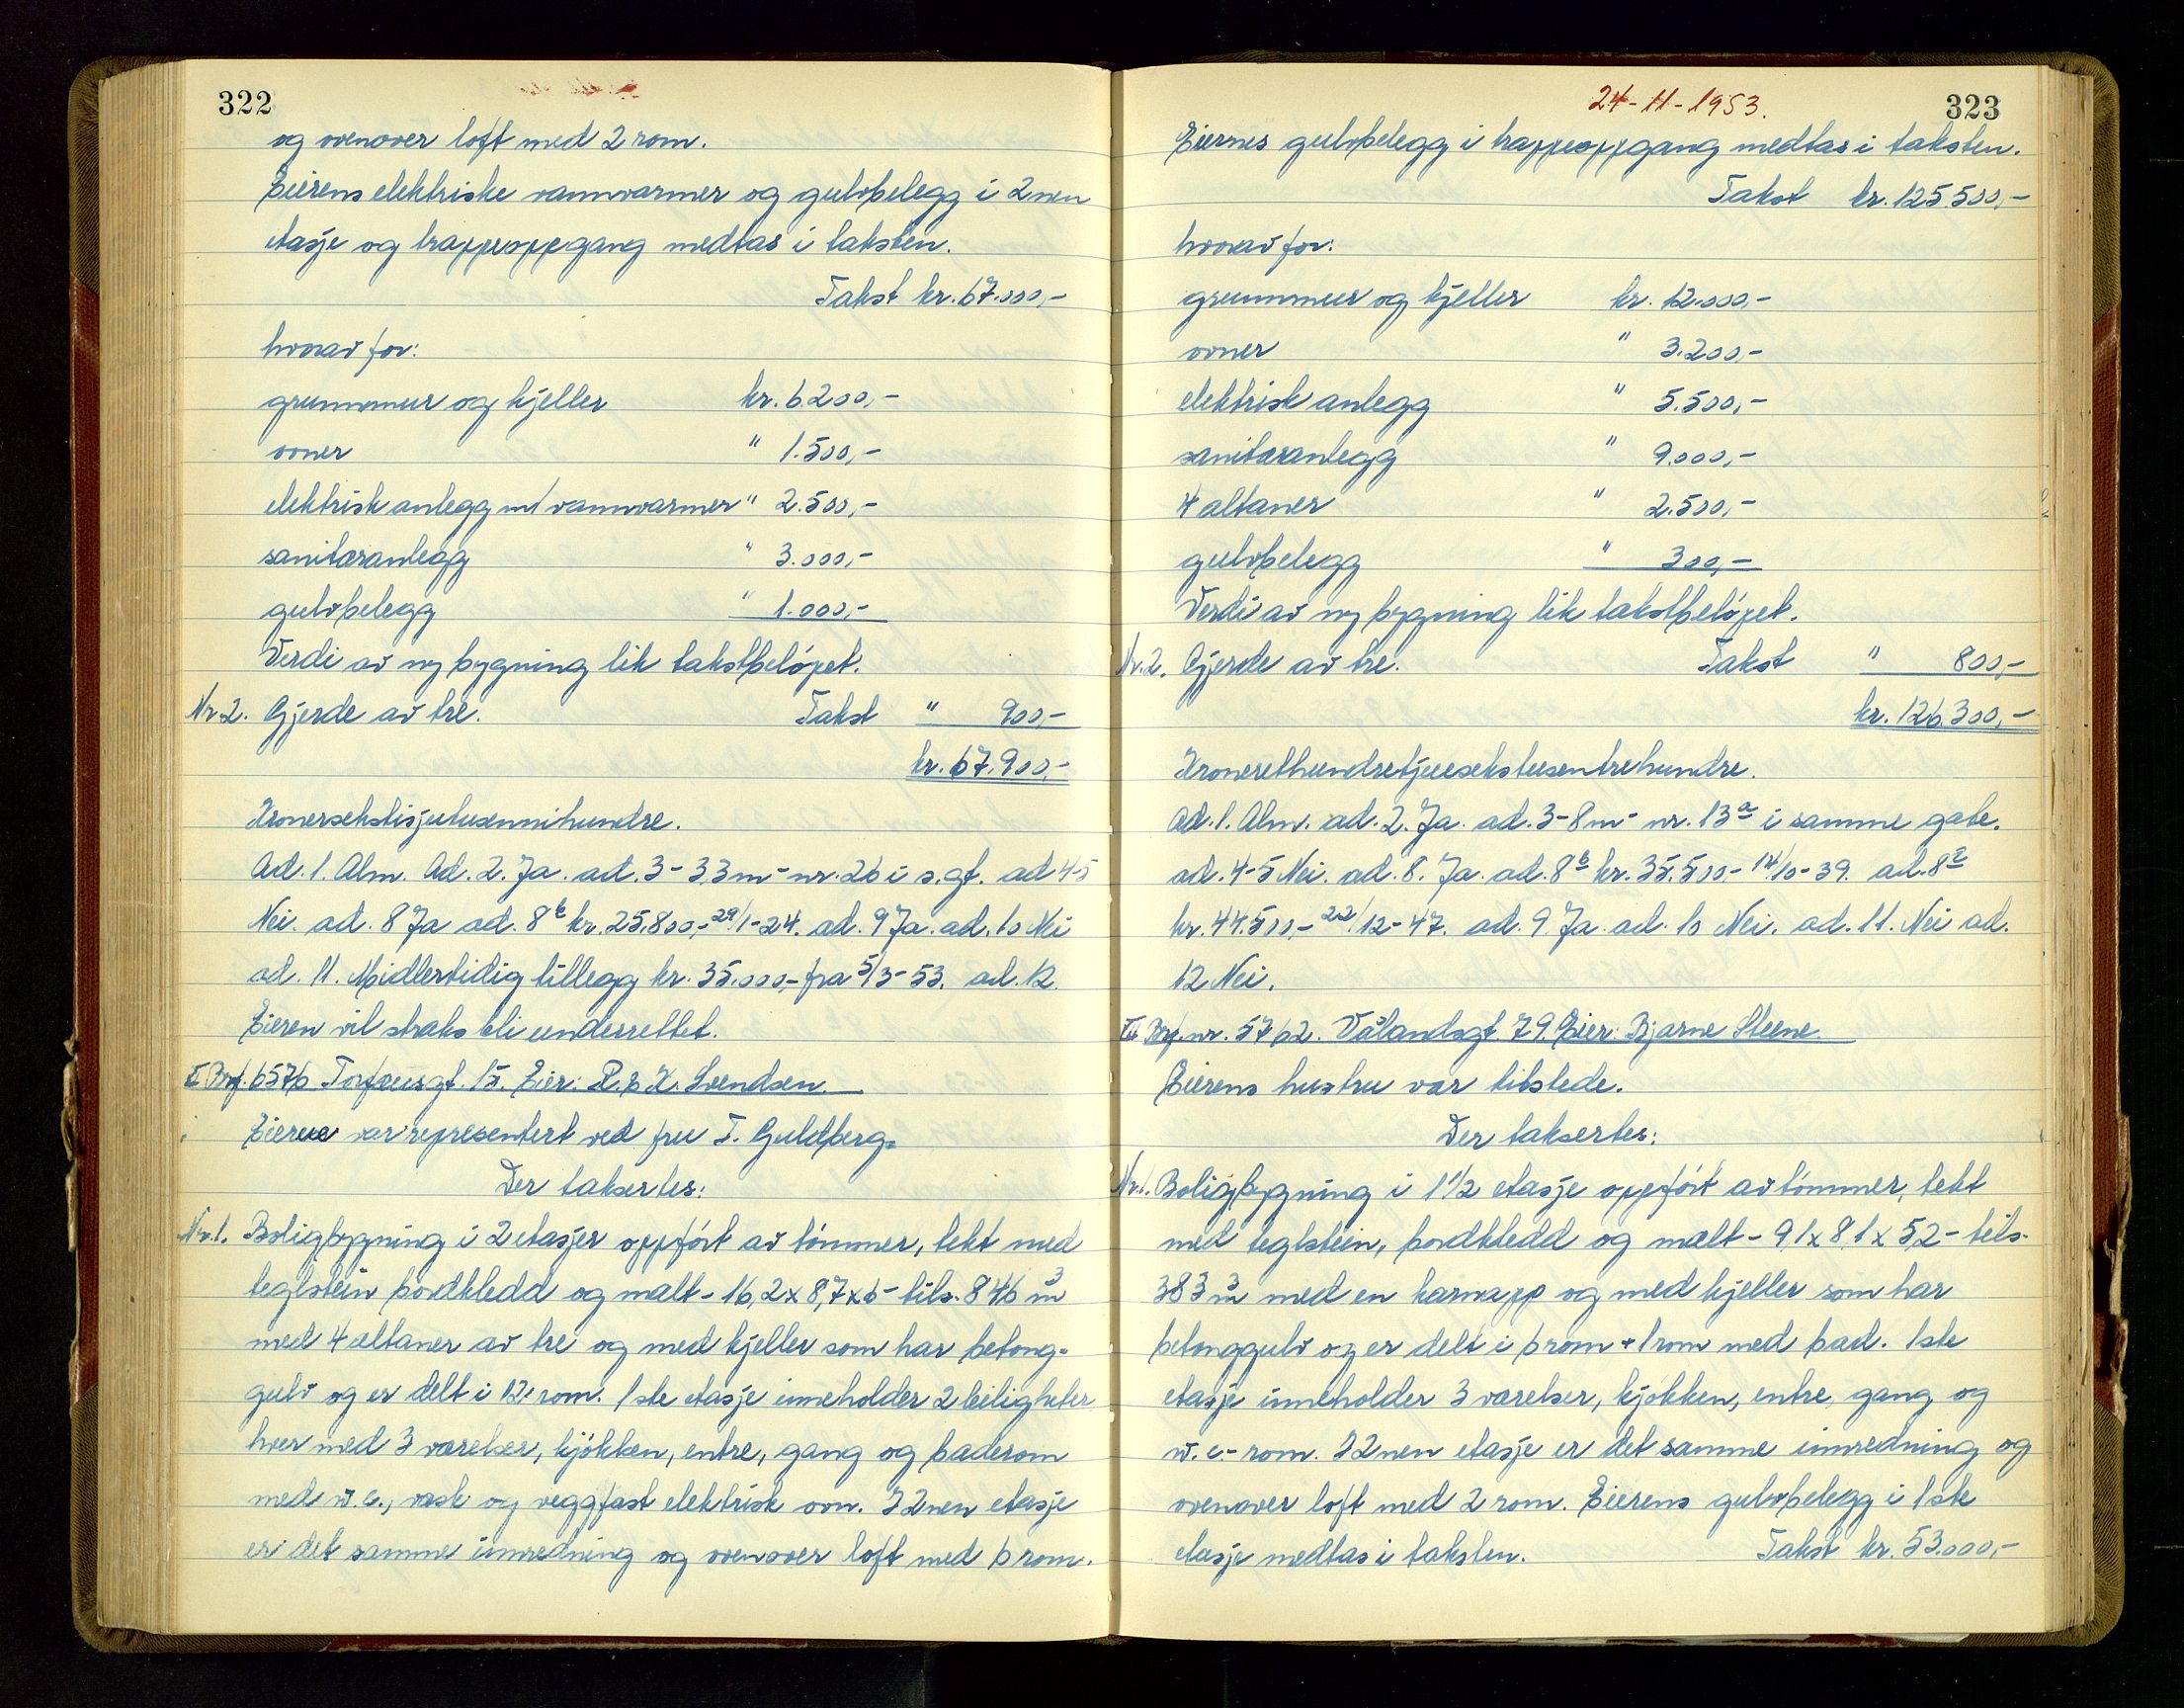 322
og ovenover loft med 2 rom.
Eierens elektriske vannvarmer og gulvbelegg i 2nen
etasje og trappeoppgang medtas i taksten.
Takst kr. 67.000,-
hvorav for:
grunnmur og kjeller kr. 6.200,-
ovner " 1.500,-
elektrisk anlegg m/ vannvarmer " 2.500,-
sanitæranlegg " 3.000,-
gulvbelegg " 1.000,-
Verdi av ny bygning lik takstbeløpet.
Nr. 2. Gjerde av tre. Takst " 900,-
kr. 67.900,-
Kronersekstisjutusennihundre.
Ad. 1. Alm. Ad. 2. Ja. ad. 3 - 3,3m - nr. 26 i s. gt. ad 4-5
Nei. ad. 8 Ja ad. 8b kr. 25.800,- 29/1-24. ad. 9 Ja. ad. 10 Nei
ad. 11. Midlertidig tillegg kr. 35.000,- fra 5/3-53. ad. 12.
Eieren vil straks bli underrettet.
Brf. 6576 Torfæusgt. 15. Eier: R. & K. Svendsen.
Eierne var representert ved fru T. Guldberg.
Der taksertes:
Nr. 1. Boligbygning i 2 etasjer oppført av tømmer, tekt med
teglstein bordkledd og malt - 16,2 x 8,7 x 6 - tils. 846 m3
med 4 altaner av tre og med kjeller som har betong-
gulv og er delt i 12 rom. 1ste etasje inneholder 2 leiligheter
hver med 3 værelser, kjøkken, entre, gang og baderom
med w.c., vask og veggfast elektrisk ovn. I 2nen etasje
er det samme innredning og ovenover loft med 6 rom.
24-11-1953.
323
Eiernes gulvbelegg i trappeoppgang medtas i taksten.
Takst kr. 125.500,-
hvorav for:
grunnmur og kjeller kr. 12.000,-
ovner " 3.200,-
elektrisk anlegg " 5.500,-
sanitæranlegg " 9.000,-
4 altaner " 2.500,-
gulvbelegg " 300,-
Verdi av ny bygning lik takstbeløpet.
Nr. 2. Gjerde av tre. Takst " 800,-
kr. 126.300,-
Kroneretthundretjuesekstusentrehundre.
Ad. 1. Alm. ad. 2. Ja. ad. 3 - 8m - nr. 13a i samme gate.
ad. 4-5 Nei. ad. 8. Ja. ad. 8b kr. 35.500,- 14/10-39. ad. 8c
kr. 44.500,- 22/12-47. ad. 9 Ja. ad. 10 Nei. ad. 11. Nei ad.
12 Nei.
Brf. nr. 5762. Vålandsgt. 79. Eier: Bjarne Steene.
Eierens hustru var tilstede.
Der taksertes:
Nr. 1. Boligbygning i 1 1/2 etasje oppført av tømmer, tekt
med teglstein, bordkledd og malt - 9,1 x 8,1 x 5,2 - tils.
383 m3 med en karnapp og med kjeller som har
betonggulv og er delt i 6 rom + 1 rom med bad. 1ste
etasje inneholder 3 værelser, kjøkken, entre, gang og
w.c.- rom. I 2nen etasje er det samme innredning og
ovenover loft med 2 rom. Eierens gulvbelegg i 1ste
etasje medtas i taksten. Takst kr. 53.000,-